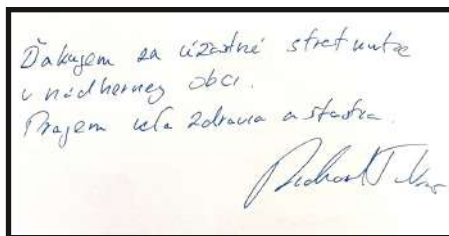 Ďakujem za úžastné stretnutie
v nádhernej obci.
Prajem veľa zdravia a šťastia.
Richard